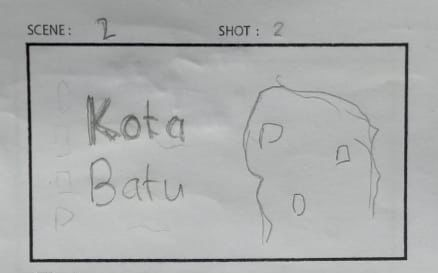 SCENE : 2
SHOT : 2
Kota
Batu